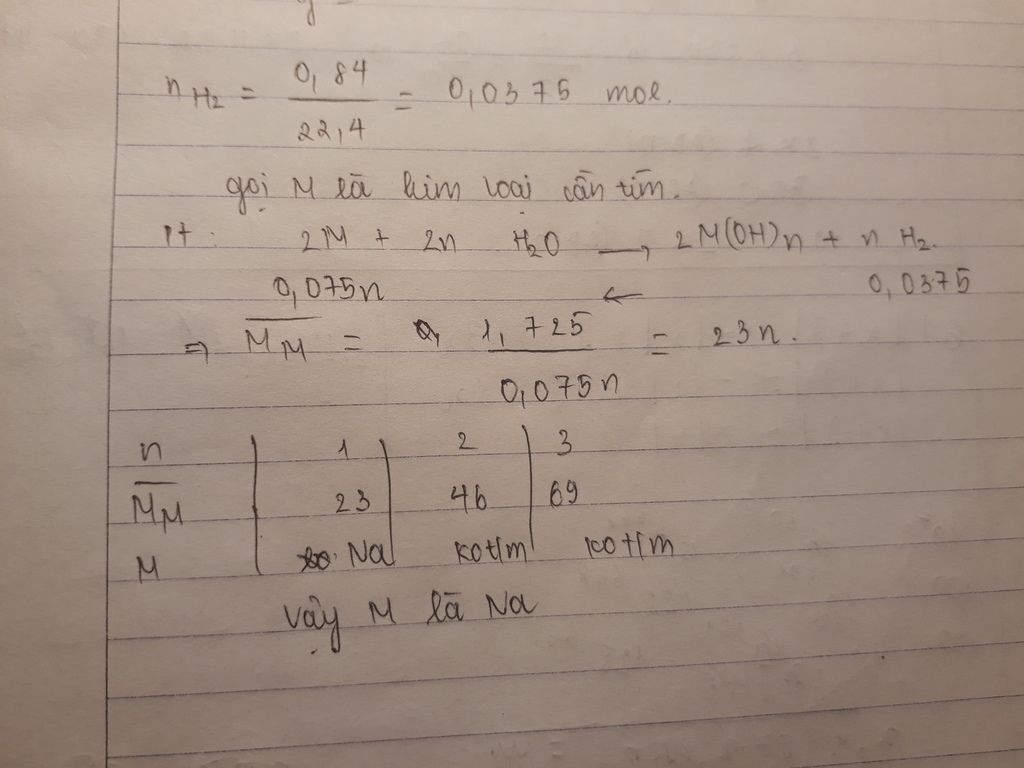 n H2 = 0,84 / 22,4 = 0,0375 mol.
gọi M là kim loại cần tìm.
Pt: 2M + 2n H2O → 2M(OH)n + n H2.
0,075n ← 0,0375
⇒ MM = 1,725 / 0,075n = 23n.
n | 1 | 2 | 3
MM | 23 | 46 | 69
M | Na | kotm | kotm
vậy M là Na